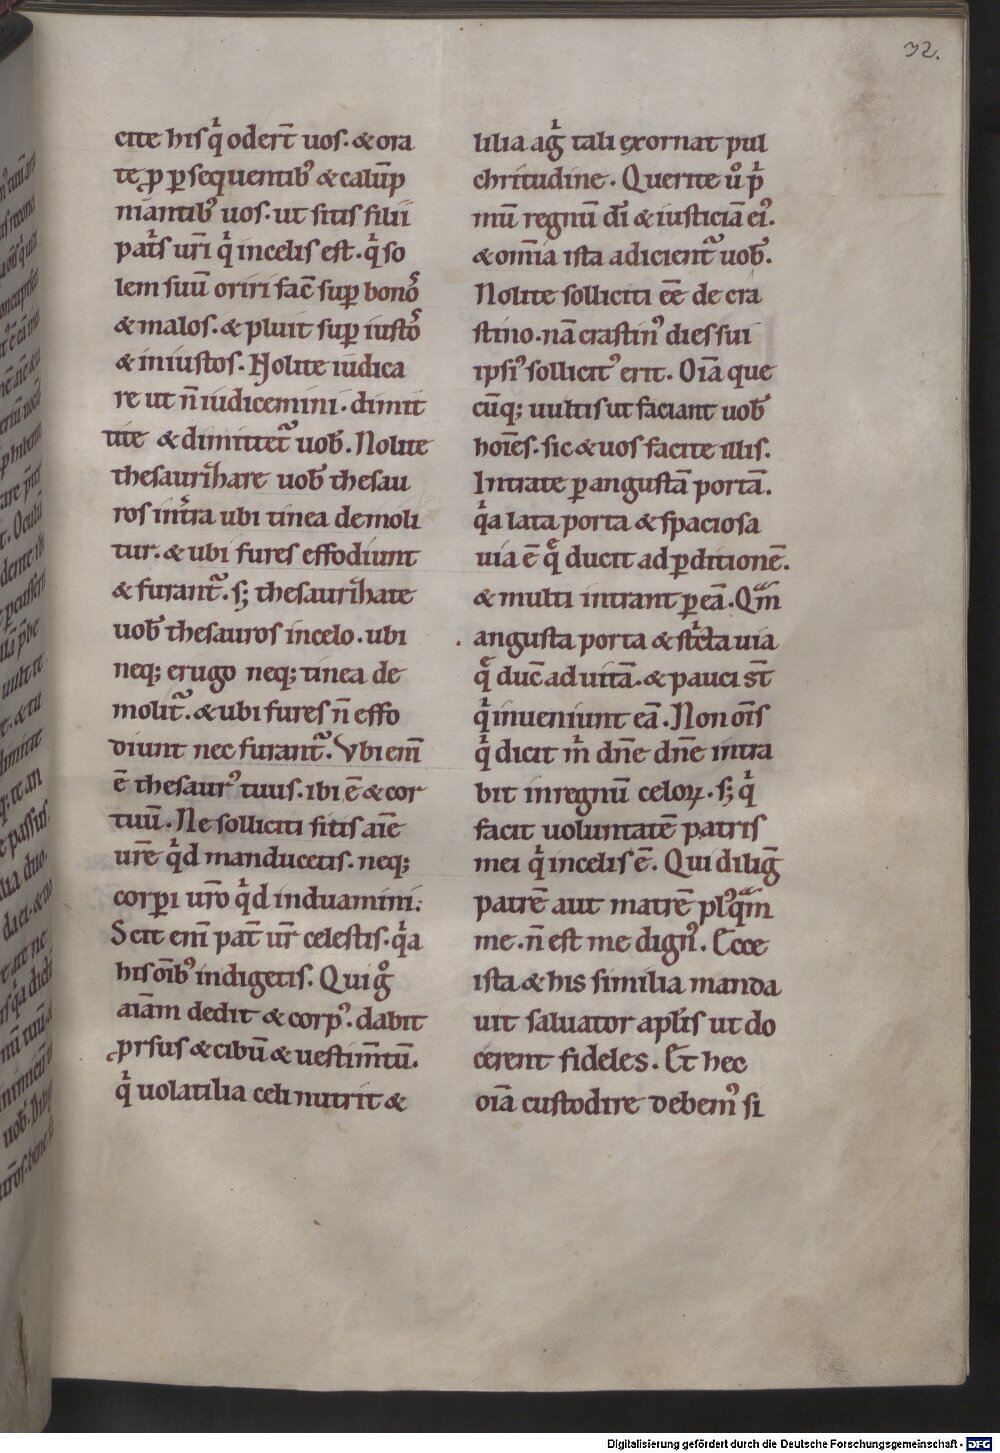 32.
cite his qͥ odert̄ uos. & ora
te ꝓ ꝑsequentib᷒ & calūp
niantib᷒ uos. ut sitis filii
pat̄s ur̄i qͥ incelis est. qͥ so
lem suū oriri fac̄ suꝑ bono᷒
& malos. & pluit suꝑ iusto᷒
& iniustos. Nolite iudica
re ut n̄ iudicemini. dimit
tite & dimittet᷑ uob̄. Nolite
thesaurihare uob̄ thesau
ros intͬa ubi tinea demoli
tur. & ubi fures effodiunt
& furant᷑. s; thesaurihate
uob̄ thesauros incelo. ubi
neq; erugo neq; tinea de
molit᷑. & ubi fures n̄ effo
diunt nec furant᷑. Vbi eni̅
ē thesaur᷒ tuus. ibi ē & cor
tuū. Ne solliciti sitis aīe
ur̄e qͥd manducetis. neq;
corꝑi ur̄o qͥd induamini.
Scit eni̅ pat̄ ur̄ celestis. qͥa
his oīb᷒ indigetis. Qui gͦ
aīam dedit & corp᷒. dabit
ꝓrsus & cibū & uestim̄tū.
qͥ uolatilia celi nutrit &
lilia agͥ tali exornat pul
chritudine. Querite uͦ pͥ
mū regnū dī & iusticiā ei᷒.
& om̄ia ista adicient᷑ uob̄.
Nolite solliciti eē de cra
stino. nā crastin᷒ dies sui
ipsi᷒ sollicit᷒ erit. Oīa que
cūq; uultis ut faciant uob̄
hoīes. sic & uos facite illis.
Intrate ꝑ angustā portā.
qͥa lata porta & spaciosa
uia ē qͤ ducit ad ꝑditionē.
& multi intrant ꝑ eā. Qm̄
angusta porta & stͥcta uia
qͤ duc̄ ad uitā. & pauci st̄
qͥ inueniunt eā. Non oīs
qͥ dicit mͥ dn̄e dn̄e intra
bit inregnū celoꝝ. s; qͥ
facit uoluntatē patris
mei qͥ incelis ē. Qui dilig̅
patrē aut matrē pl᷒qͣm
me. n̄ est me dign᷒. Ecce
ista & his similia manda
uit saluator apl̄is ut do
cerent fideles. Et hec
oīa custodire debem᷒ si
Digitalisierung gefördert durch die Deutsche Forschungsgemeinschaft - DFG